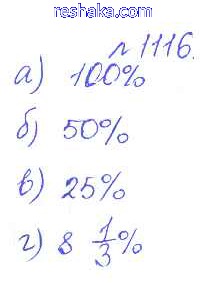 reshaka.com
№1116.
а) 100%
б) 50%
в) 25%
г) 8 1/3 %